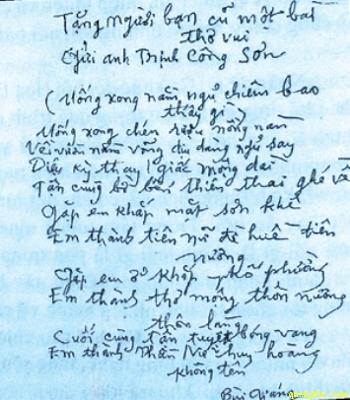 Tặng người bạn cũ một bài
thơ vui
Gửi anh Trịnh Công Sơn
(Uống xong nằm ngủ chiêm bao
thấy gì)
Uống xong chén rượu nồng nàn
Về vườn nằm võng dịu dàng ngủ say
Diệu kỳ thay! giấc mộng dài
Tận cùng bờ bến thiên thai ghé về
Gặp em khắp mặt sơn khê
Em thành tiên nữ đề huề tiên
nương
Gặp em ở khắp phố phường
Em thành thơ mộng thôn nương
thôn làng
Cuối cùng tận tuyệt bóng vang
Em thành Thần Nữ huy hoàng
không tên
Bùi Giáng